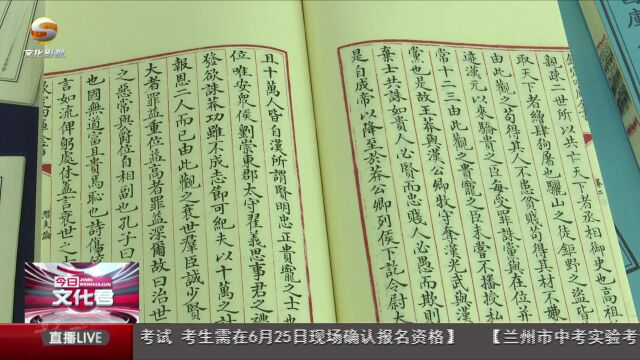 文化影视
親疎二世所以共亡天下者丞相御史也高祖
取天下者繒肆狗屠也驪山之徒鉅野之盜皆
由此觀之苟得其人不患貧賤苟得其材不嫌
迹漢元以來驕貴之臣每受罪誅黨與在位并
常十二三由此觀之貴寵之臣未嘗不播授私
黨也是故王莽與漢公卿牧守奪漢光武與漢
棄士共誅如貴人必賢而忠賤人必愚而欺則
是自成帝以降至於莽公卿列侯下訖令尉大
且十萬人皆自漢所謂賢明忠正貴寵之士也
位唯安衆侯劉崇東郡太守翟義思事君之禮
發欲誅莽功雖不成志節可紀夫以十萬之
報恩二人而已由此觀之衰世羣臣誠少賢
大者罪益重位益高者罪益深爾故曰治世
之惡常與爵位自相副也孔子曰
也國無道富且貴焉恥也詩傷
言如流俾躬處休蓋言衰世之
潛夫論
今日
文化君
JINRI WENHUAJUN
直播LIVE
考试 考生需在6月25日现场确认报名资格】 【兰州市中考实验考